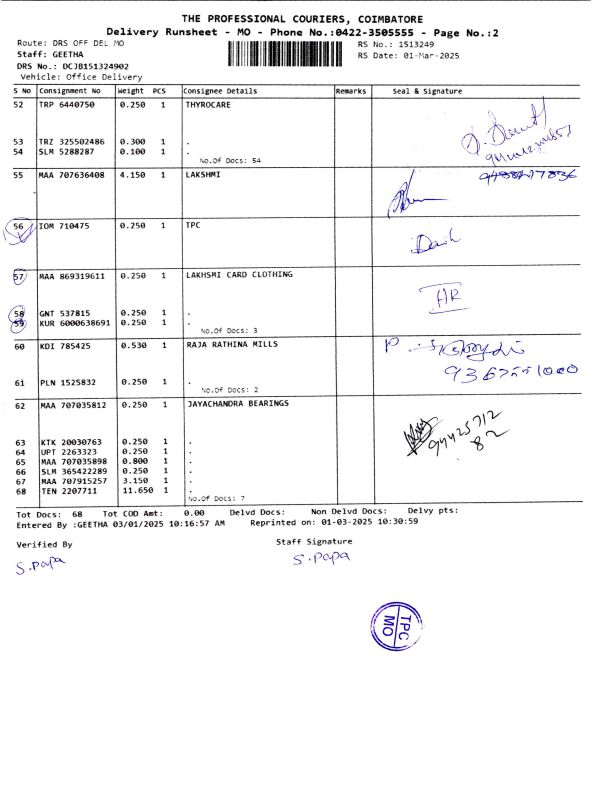 THE PROFESSIONAL COURIERS, COIMBATORE
Delivery Runsheet - MO - Phone No.:0422-3505555 - Page No.:2
Route: DRS OFF DEL MO
RS No.: 1513249
Staff: GEETHA
RS Date: 01-Mar-2025
DRS No.: DCJB151324902
Vehicle: Office Delivery
S No Consignment No Weight PCS Consignee Details Remarks Seal & Signature
52 TRP 6440750 0.250 1 THYROCARE
53 TRZ 325502486 0.300 1 .
54 SLM 5288287 0.100 1 .
No.Of Docs: 54
55 MAA 707636408 4.150 1 LAKSHMI
56 IOM 710475 0.250 1 TPC
57 MAA 869319611 0.250 1 LAKHSMI CARD CLOTHING
58 GNT 537815 0.250 1 .
59 KUR 6000638691 0.250 1 .
No.Of Docs: 3
60 KDI 785425 0.530 1 RAJA RATHINA MILLS
61 PLN 1525832 0.250 1 .
No.Of Docs: 2
62 MAA 707035812 0.250 1 JAYACHANDRA BEARINGS
94425712
82
63 KTK 20030763 0.250 1 .
64 UPT 2263323 0.250 1 .
65 MAA 707035898 0.800 1 .
66 SLM 365422289 0.250 1 .
67 MAA 707915257 3.150 1 .
68 TEN 2207711 11.650 1 .
No.Of Docs: 7
Tot Docs: 68 Tot COD Amt: 0.00 Delvd Docs: Non Delvd Docs: Delvy pts:
Entered By :GEETHA 03/01/2025 10:16:57 AM Reprinted on: 01-03-2025 10:30:59
Verified By
Staff Signature
S. papa
S. papa
TPC
MO